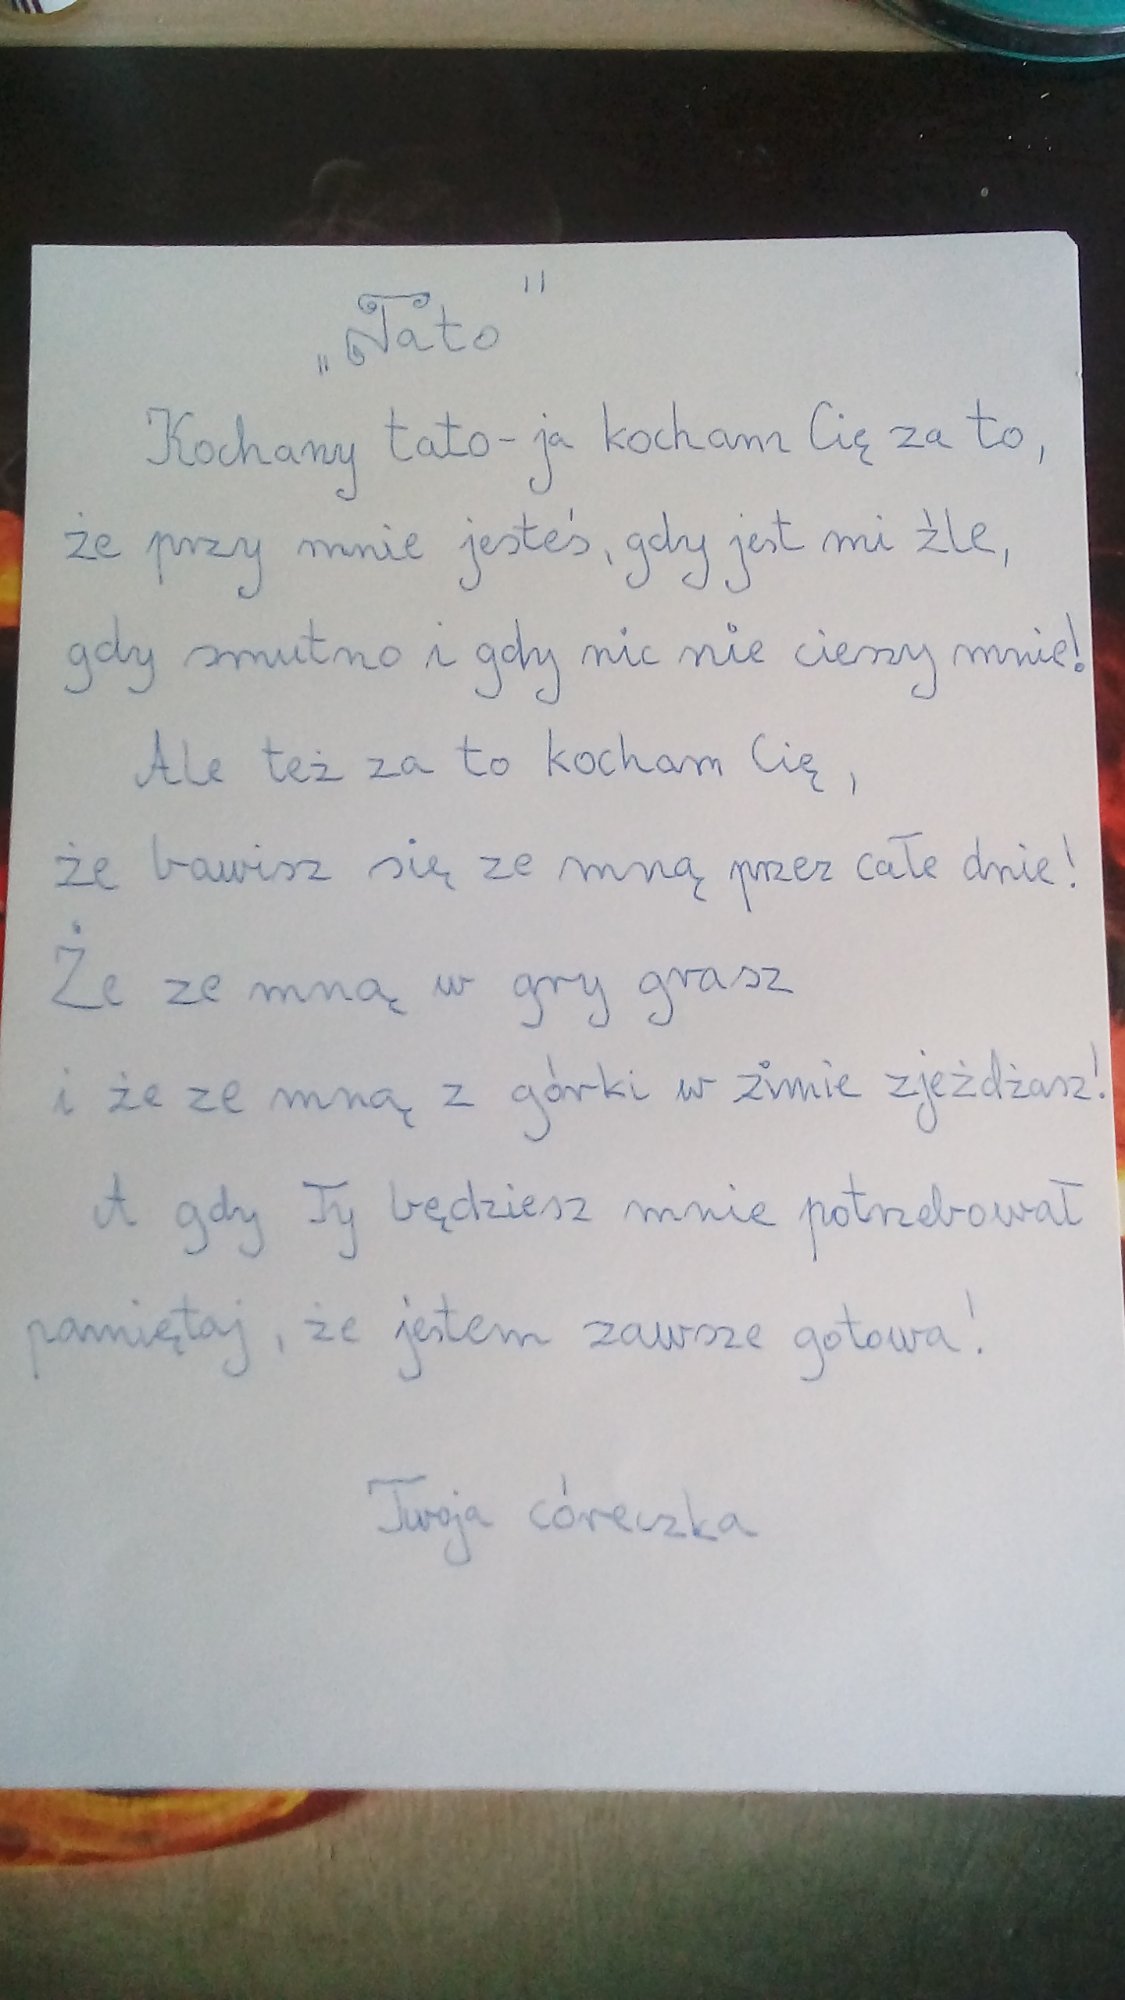 „Tato"
Kochany tato - ja kocham Cię za to,
że przy mnie jesteś, gdy jest mi źle,
gdy smutno i gdy nic nie cieszy mnie!
Ale też za to kocham Cię,
że bawisz się ze mną przez całe dnie!
Że ze mną w gry grasz
i że ze mną z górki w zimie zjeżdżasz!
A gdy Ty będziesz mnie potrzebował
pamiętaj, że jestem zawsze gotowa!
Twoja córeczka